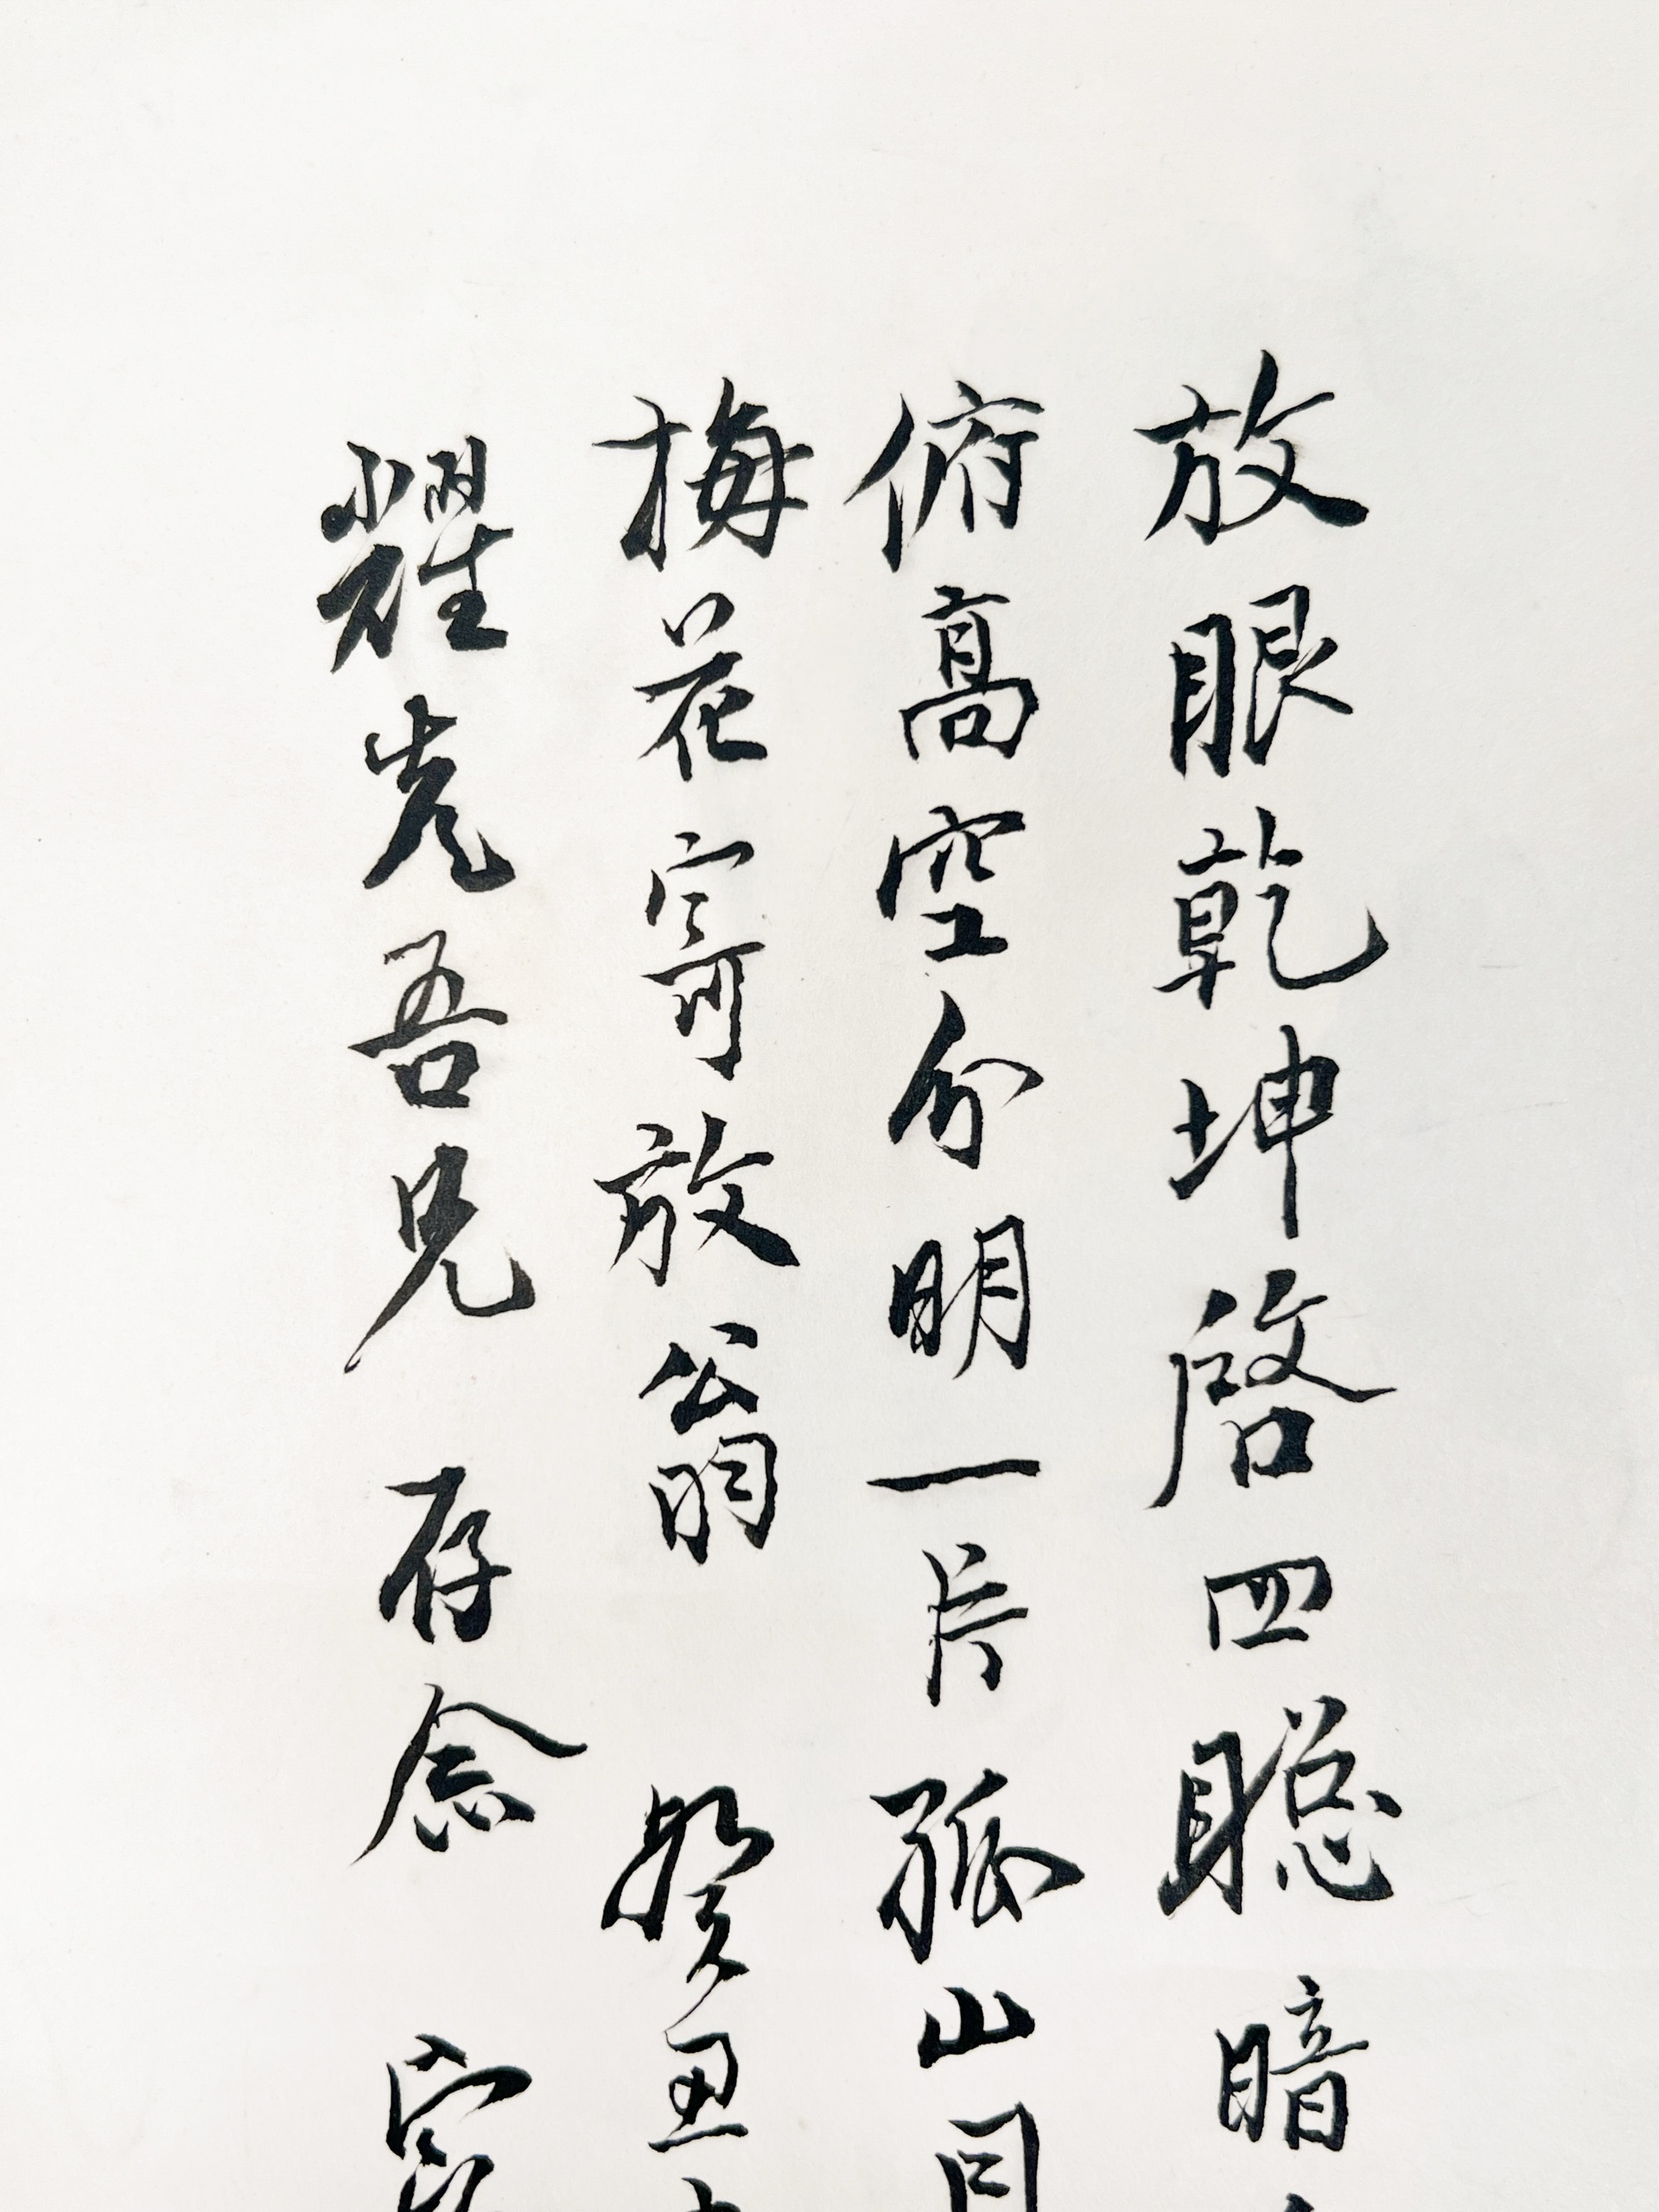 放眼乾坤啓四聰暗
俯高空分明一片孤山
梅花寄放翁 癸丑
耀先吾兄 存念